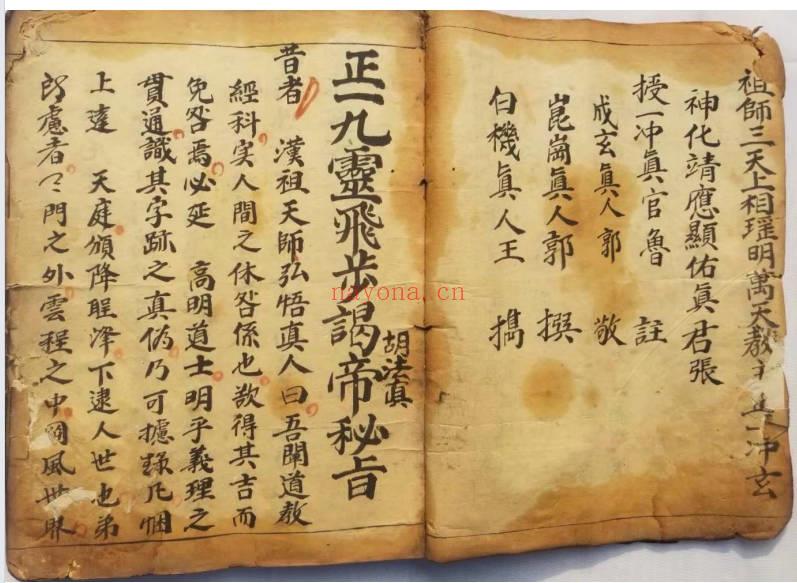 祖師三天上相瑶明萬天教主正一冲玄
神化靖應顯佑眞君張
授一冲眞官魯 註
成玄眞人郭 敬
崑崗眞人郭 撰
白機眞人王 撝
胡法眞
正一九靈飛步謁帝秘旨
昔者 漢祖天師弘悟真人曰吾聞道教
經科実人間之休咎係也欲得其吉而
免咎焉必延 高明道士明乎義理之
貫通識其字跡之真僞乃可據録凡悃
上達 天庭頒降聖澤下逮人世也弟
慮者天門之外雲程之中罡風世界
navona.cn